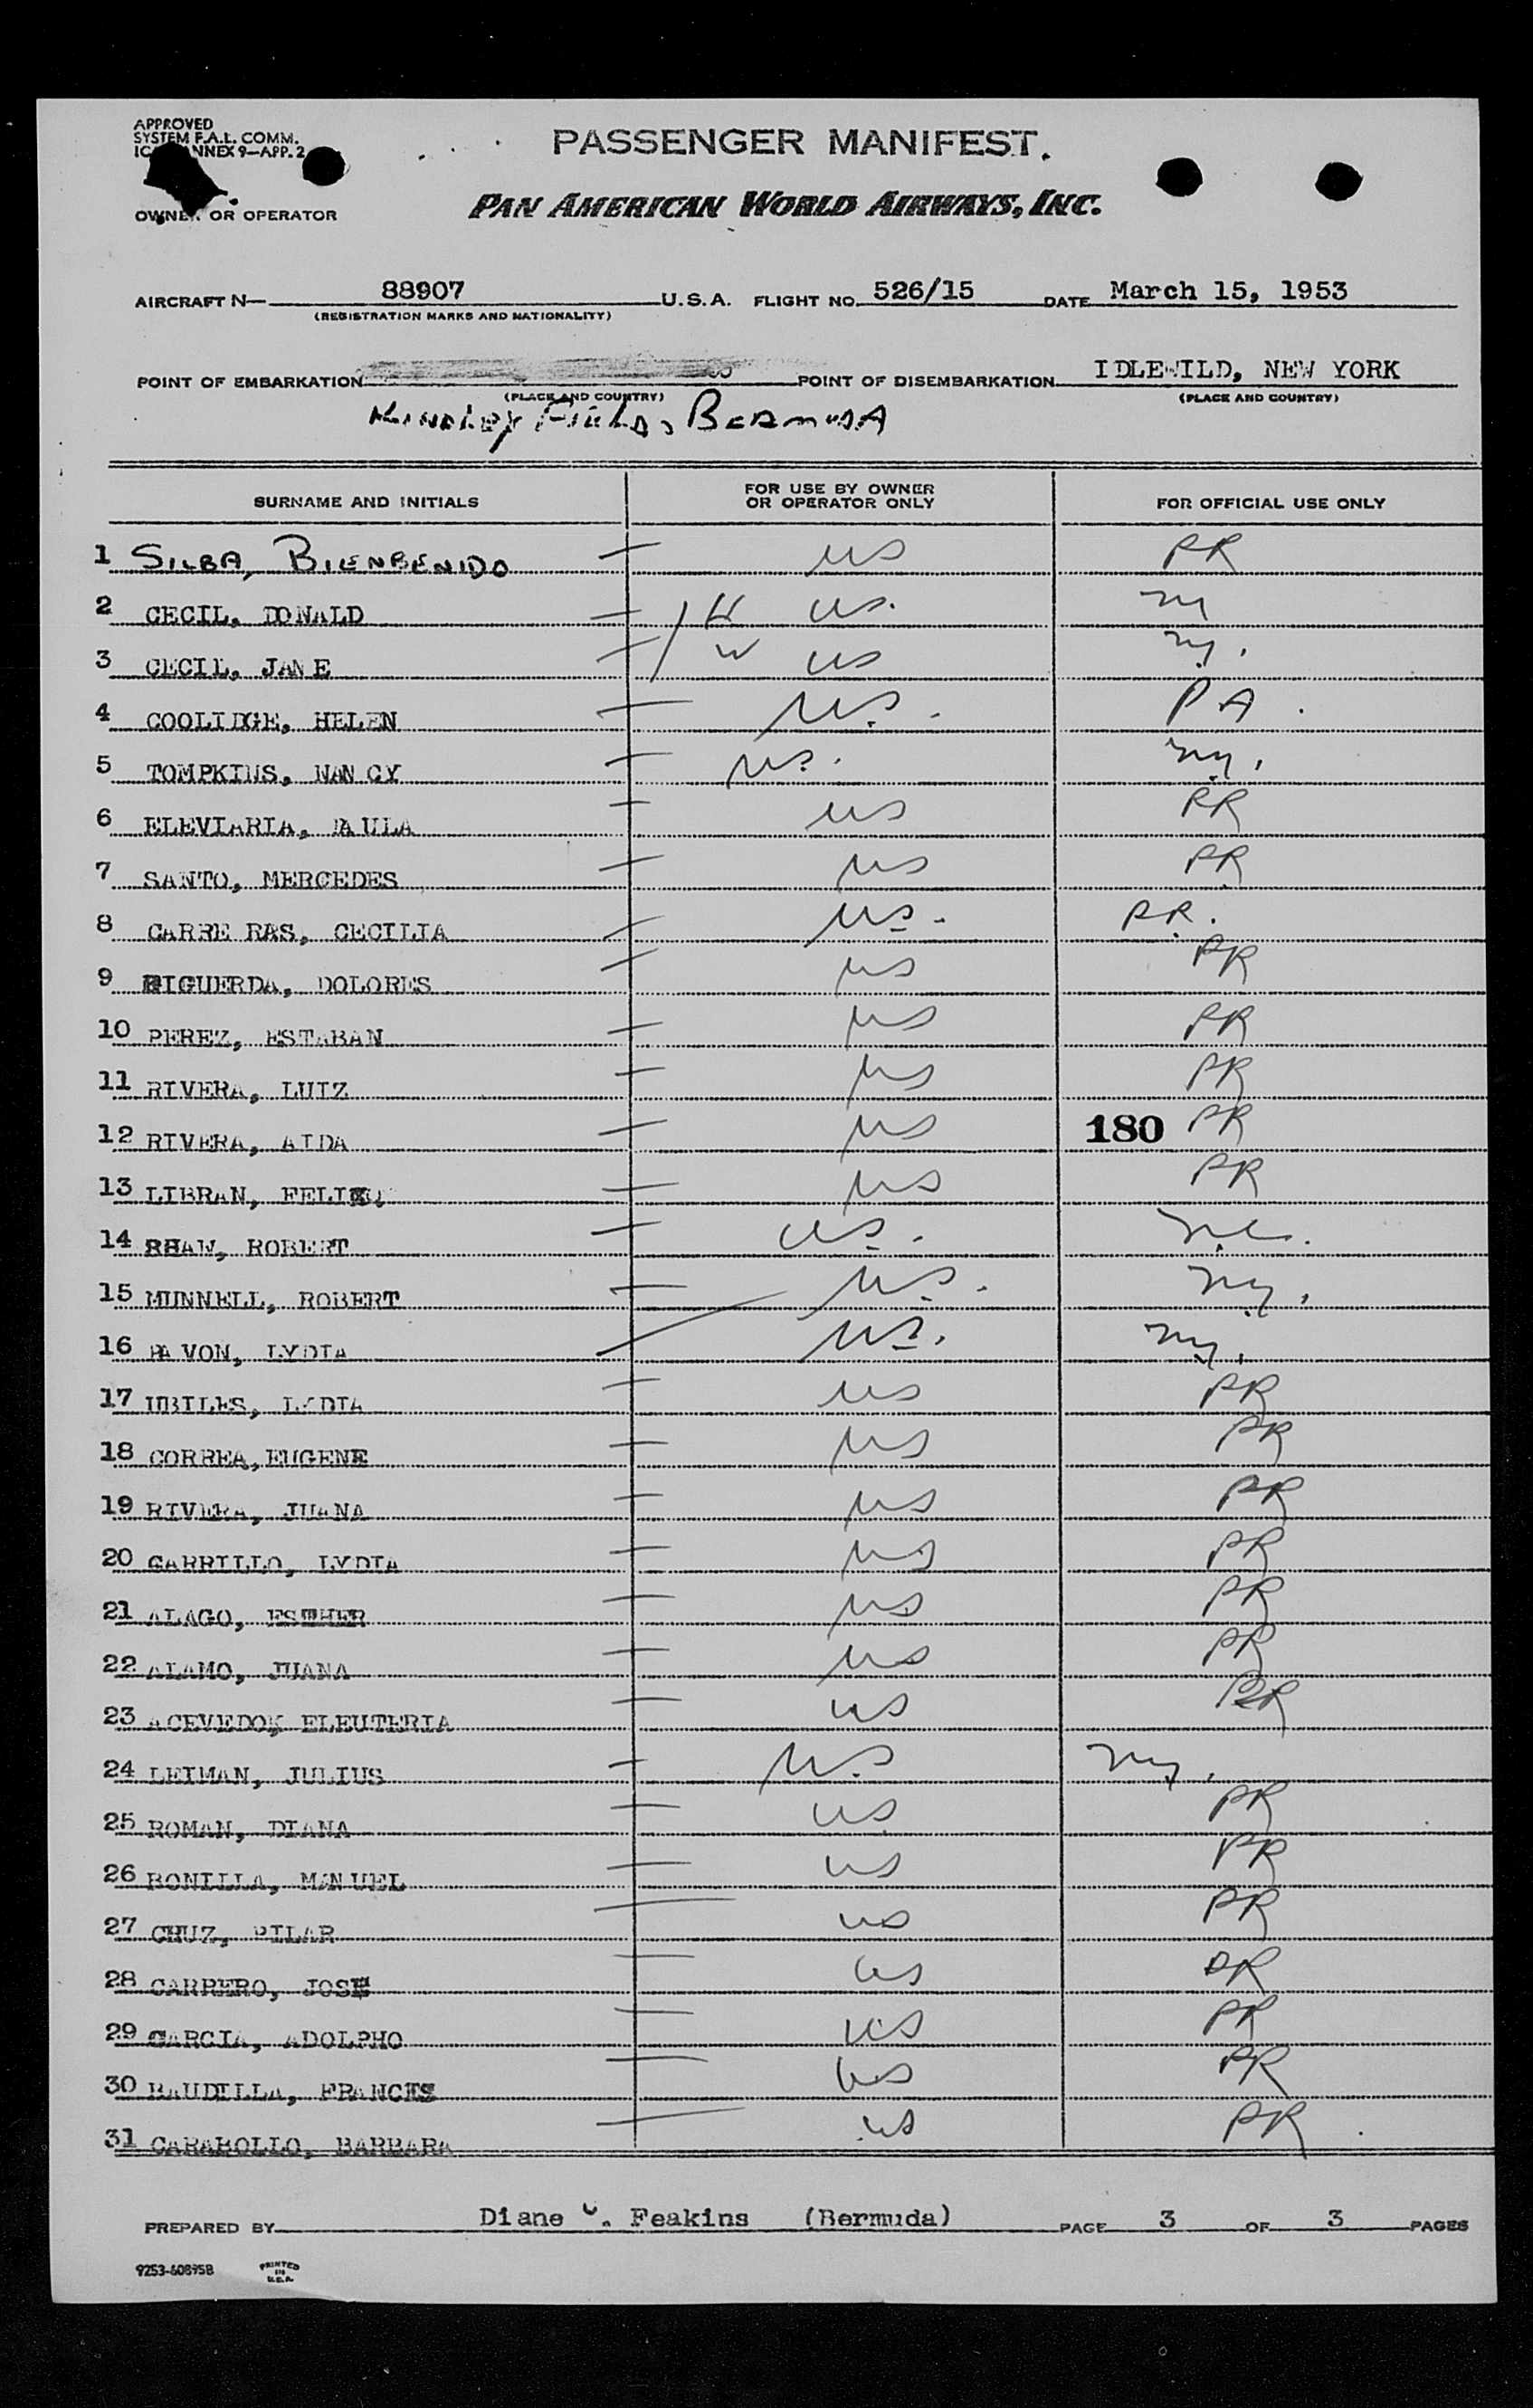 APPROVED
SYSTEM F.A.L. COMM.
ANNEX 9—APP. 2
PASSENGER MANIFEST.
OWNER OR OPERATOR
PAN AMERICAN WORLD AIRWAYS, INC.
AIRCRAFT N— 88907 U.S.A. FLIGHT NO. 526/15 DATE March 15, 1953
(REGISTRATION MARKS AND NATIONALITY)
POINT OF EMBARKATION POINT OF DISEMBARKATION IDLEWILD, NEW YORK
(PLACE AND COUNTRY) (PLACE AND COUNTRY)
KINDLEY FIELD, BERMUDA
SURNAME AND INITIALS FOR USE BY OWNER OR OPERATOR ONLY FOR OFFICIAL USE ONLY
1 SILBA, BIENBENIDO — US PR
2 CECIL, DONALD — H US. NY
3 CECIL, JANE — W US NY.
4 COOLIDGE, HELEN — US. PA.
5 TOMPKINS, NANCY — US. NY.
6 ELEVIARIA, PAULA — US PR
7 SANTO, MERCEDES — US PR
8 CARRE RAS, CECILIA — US. PR.
9 FIGUERDA, DOLORES — US PR
10 PEREZ, ESTABAN — US PR
11 RIVERA, LUIZ — US PR
12 RIVERA, AIDA — US 180 PR
13 LIBRAN, — US PR
14 SHAW, ROBERT — US.
15 MUNNELL, ROBERT — US. NY.
16 PAVON, LYDIA — US. NY.
17 UBILES, LYDIA — US PR
18 CORREA, EUGENE — US PR
19 RIVERA, JUANA — US PR
20 CARRILLO, LYDIA — US PR
21 ALAGO, ESTHER — US PR
22 ALAMO, JUANA — US PR
23 ACEVEDO, ELEUTERIA — US PR
24 LEIMAN, JULIUS — U.S NY.
25 ROMAN, DIANA — US PR
26 BONILLA, MANUEL — US PR
27 CRUZ, PILAR — US PR
28 CARRERO, JOSE — US PR
29 GARCIA, ADOLPHO — US PR
30 BAUDILLA, FRANCES — US PR
31 CARABOLLO, BARBARA — US PR
PREPARED BY Diane . Feakins (Bermuda) PAGE 3 OF 3 PAGES
9253-60895B PRINTED IN U.S.A.